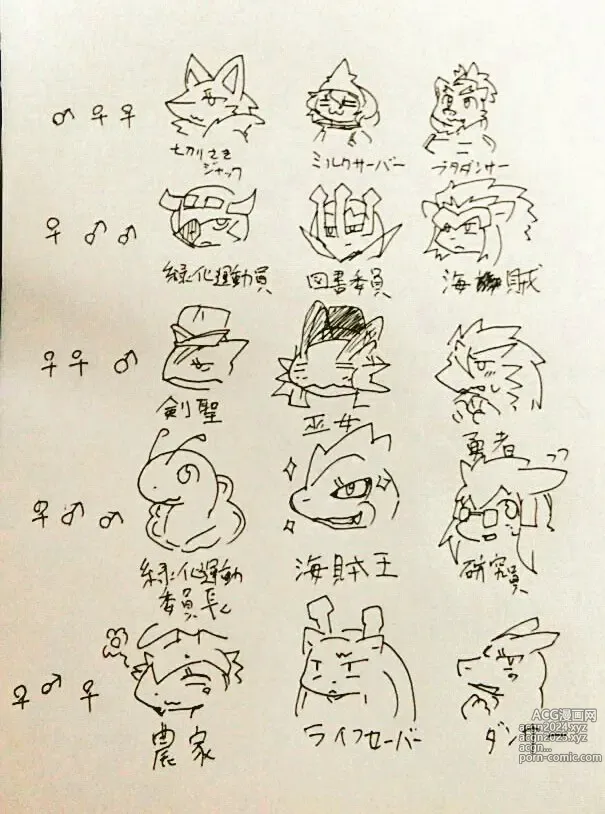 ♂ ♀ ♀
七刀りさき
ジャック
ミルクサーバー
ブタダンサー
♀ ♂ ♂
緑化運動員
図書委員
海賊
♀ ♀ ♂
剣聖
巫女
勇者
♀ ♂ ♂
緑化運動
委員長
海賊王
研究員
♀ ♂ ♀
農家
ライフセーバー
ダンサー
ACG漫画网
acgn2024.xyz
acgn2025.xyz
acgn...
porn-comic.com